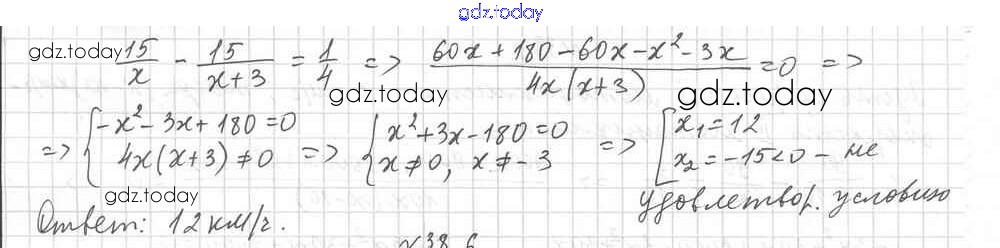 gdz.today
gdz.today 15/x - 15/(x+3) = 1/4 => (60x + 180 - 60x - x² - 3x)/(4x(x+3)) = 0 =>
gdz.today gdz.today
=> { -x² - 3x + 180 = 0
4x(x+3) ≠ 0 => { x² + 3x - 180 = 0
x ≠ 0, x ≠ -3 => [ x₁ = 12
x₂ = -15 < 0 - не
удовлетвор. условию
gdz.today
Ответ: 12 км/г.